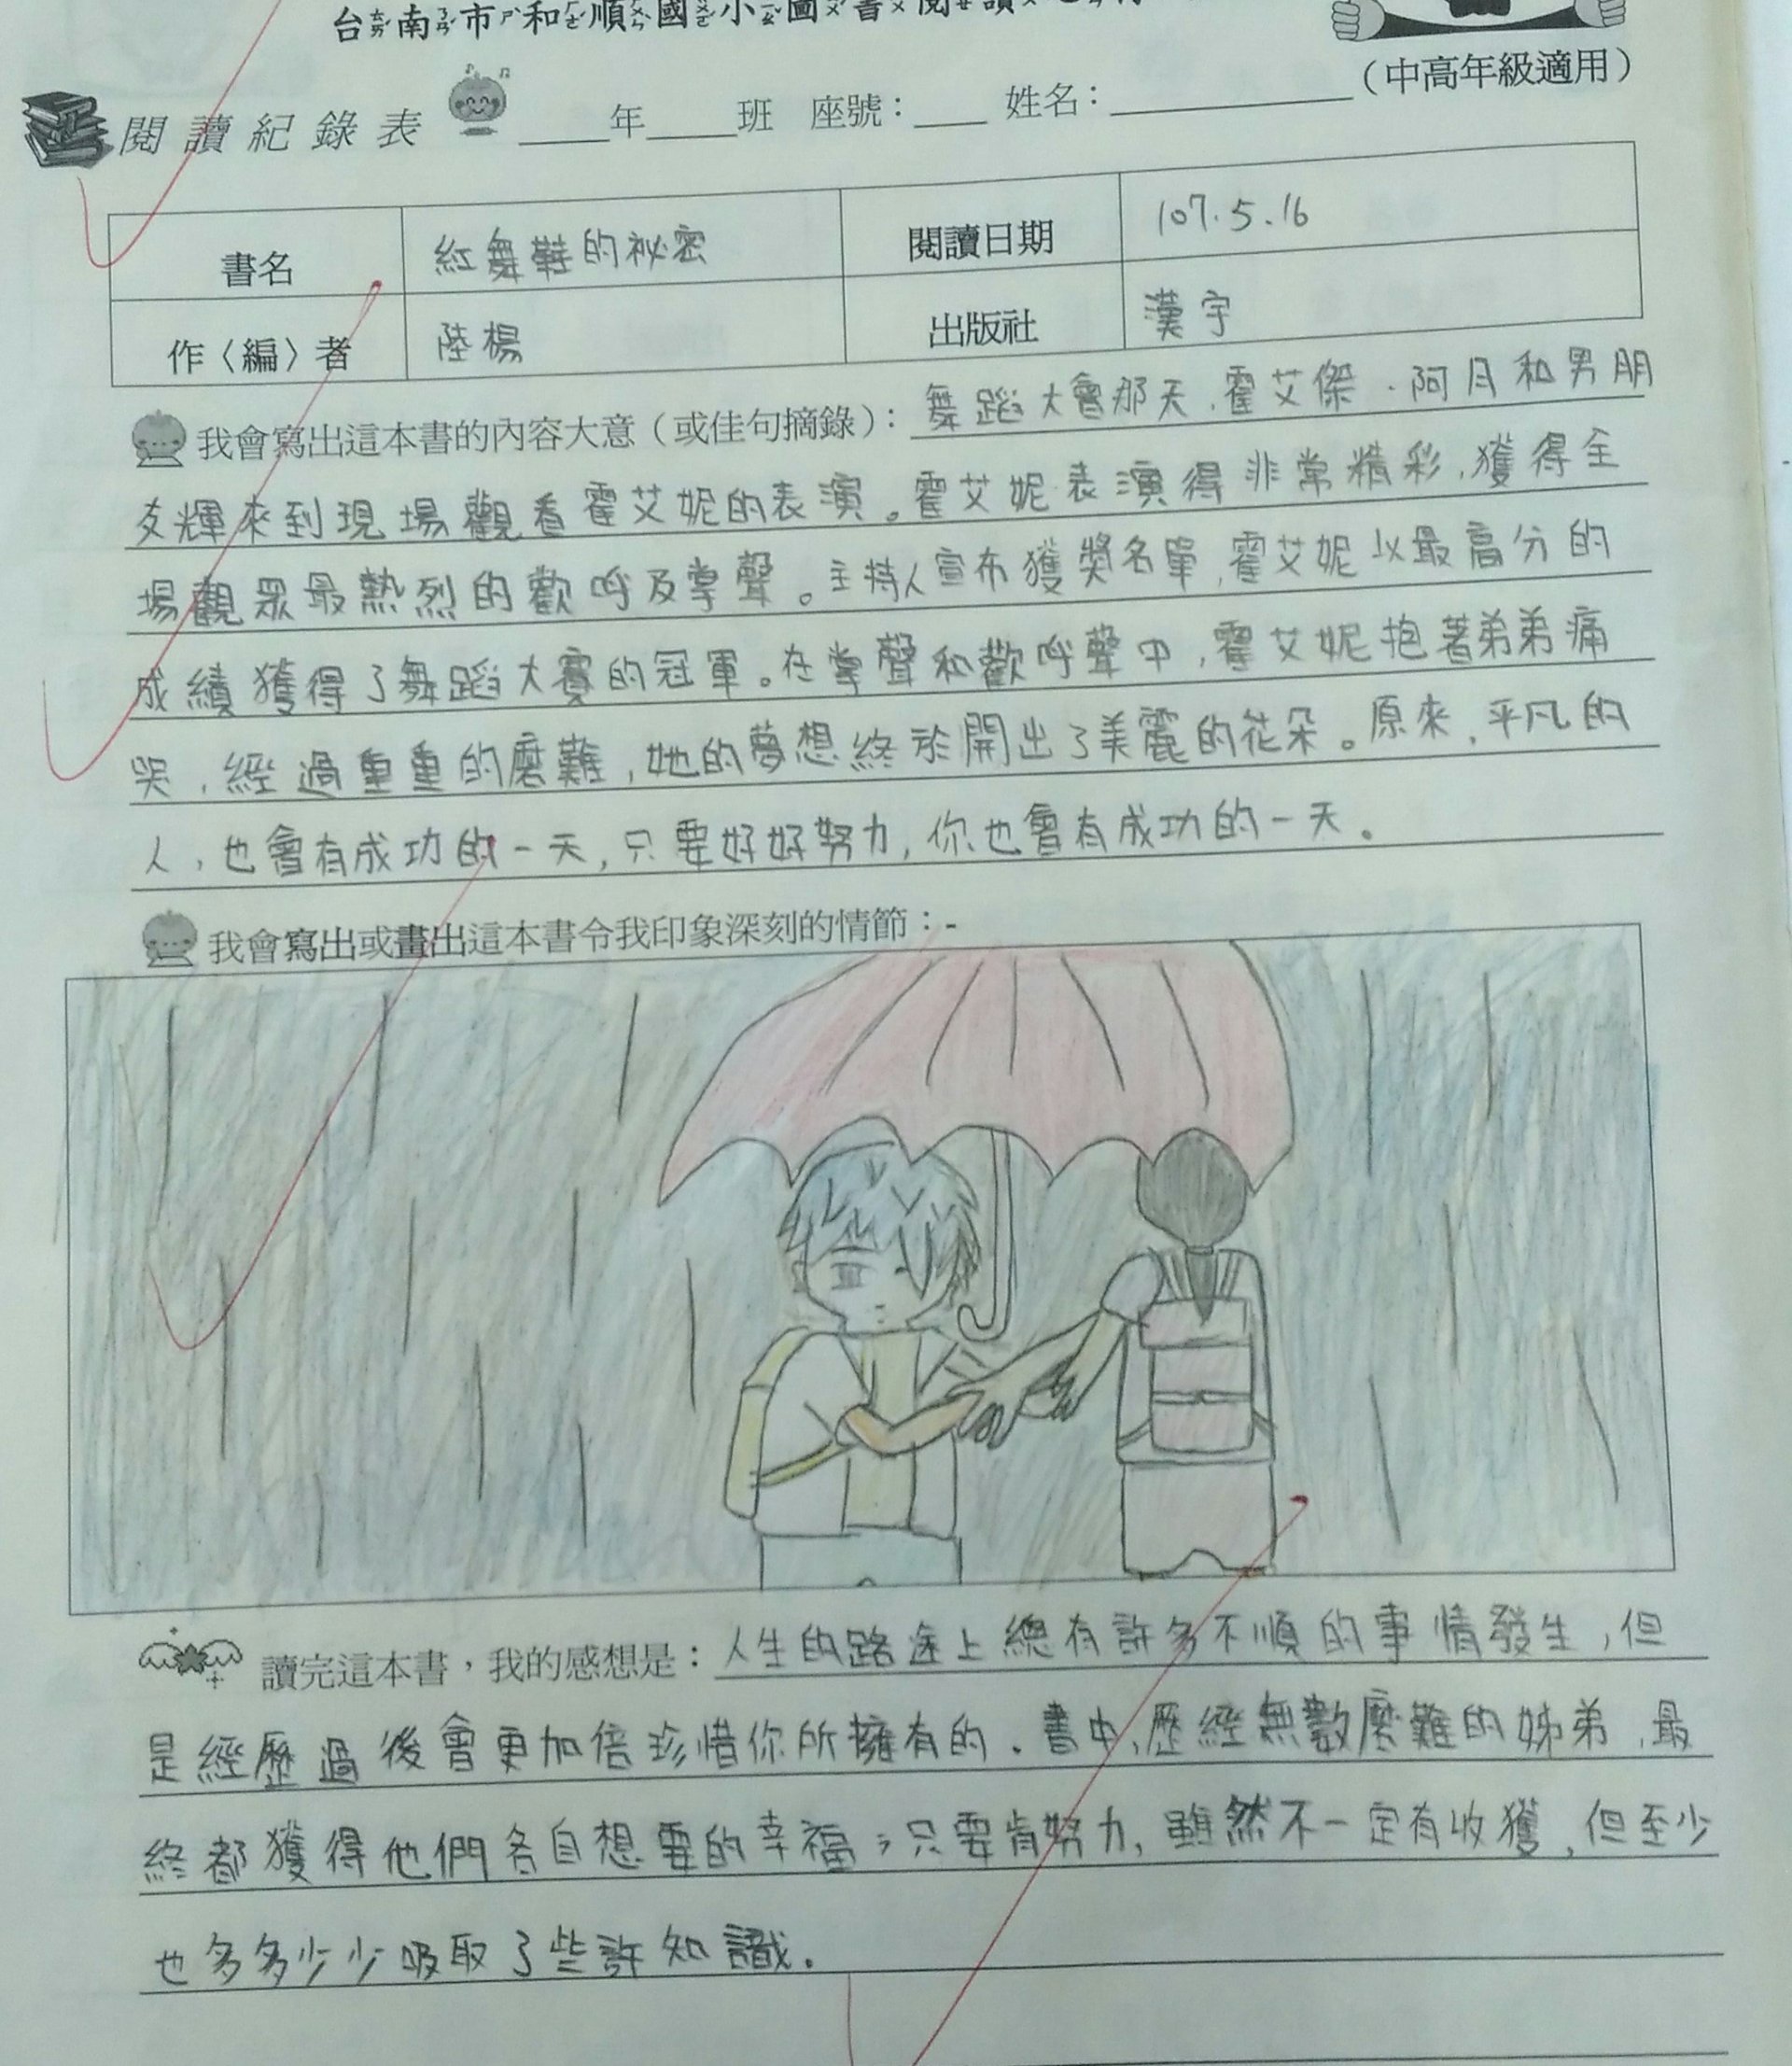 台南市和順國小圖書閱讀
(中高年級適用)
閱讀紀錄表 ____年____班 座號：____ 姓名：________
書名 紅舞鞋的祕密 閱讀日期 107.5.16
作〈編〉者 陸楊 出版社 漢宇
我會寫出這本書的內容大意（或佳句摘錄）：舞蹈大會那天，霍艾傑、阿月和男朋
友輝來到現場觀看霍艾妮的表演。霍艾妮表演得非常精彩，獲得全
場觀眾最熱烈的歡呼及掌聲。主持人宣布獲獎名單，霍艾妮以最高分的
成績獲得了舞蹈大賽的冠軍。在掌聲和歡呼聲中，霍艾妮抱著弟弟痛
哭，經過重重的磨難，她的夢想終於開出了美麗的花朵。原來，平凡的
人，也會有成功的一天，只要好好努力，你也會有成功的一天。
我會寫出或畫出這本書令我印象深刻的情節：-
讀完這本書，我的感想是：人生的路途上總有許多不順的事情發生，但
是經歷過後會更加倍珍惜你所擁有的。書中，歷經無數磨難的姊弟，最
終都獲得他們各自想要的幸福；只要肯努力，雖然不一定有收獲，但至少
也多多少少吸取了些許知識。